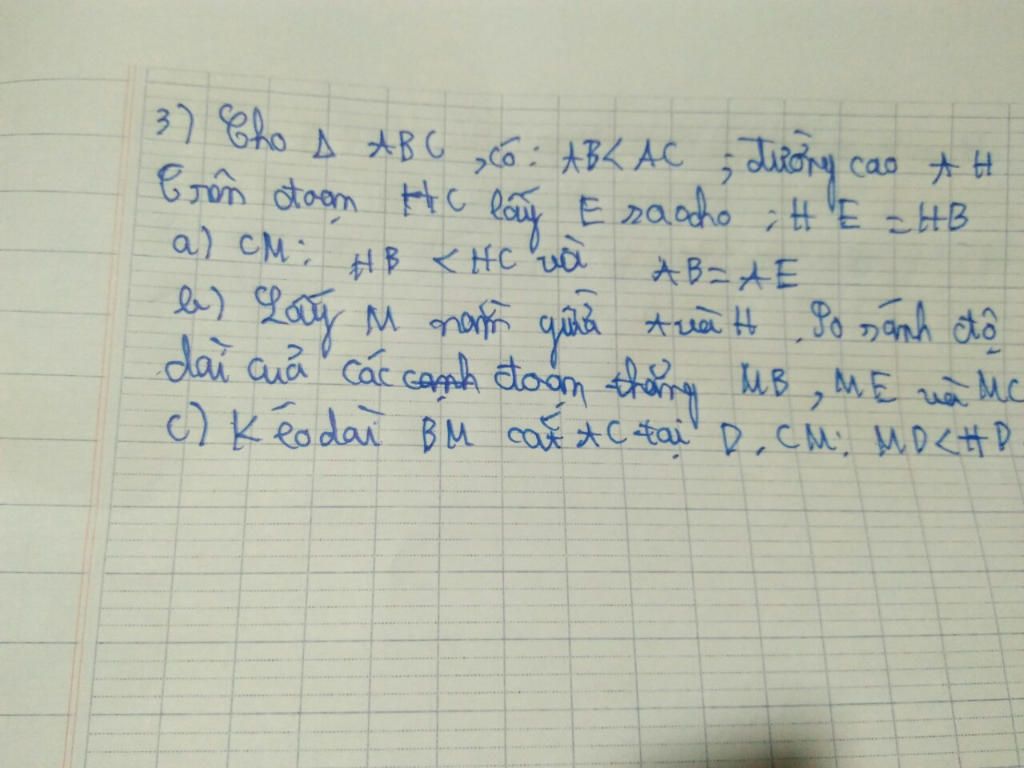 3) Cho Δ ABC , có : AB < AC ; đường cao AH
Trên đoạn HC lấy E saocho ; HE = HB
a) CM : HB < HC và AB = AE
b) Lấy M nằm giữa A và H . So sánh độ
dài của các cạnh đoạn thẳng MB , ME và MC
c) Kéo dài BM cắt AC tại D . CM : MD < HD